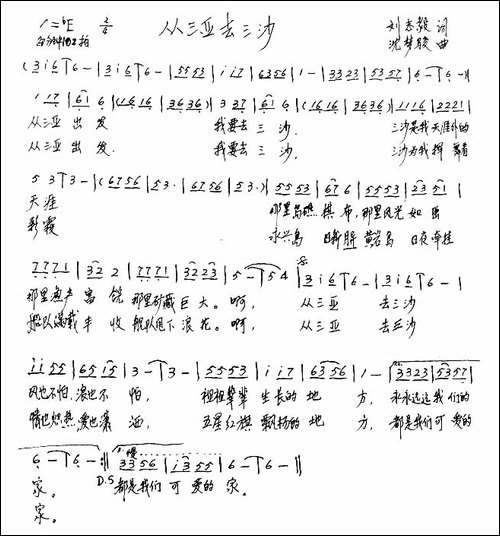 1=♭E 2/4 从三亚去三沙 刘志毅 词
每分钟102拍 沈梦骏 曲
(3 i 6 6 - | 3 i 6 6 - | 5 5 5 3 | i i 7 | 6 3 5 6 | 1 - | 3 3 2 3 | 5 3 5 7 | 6 - 6 - )|
1 1 7 | 6 1 6 | (1 6 1 6 | 3 6 3 6) | 3 2 7 | 6 1 6 | (1 6 1 6 | 3 6 3 6) | 1 1 1 6 | 2 2 2 1 |
从三亚 出 发 我要去 三 沙. 三沙是我 天涯外的
从三亚 出 发. 我要去 三 沙. 三沙为我 挥 舞着
5 3 3 - | (6 7 5 6 | 5 3 · | 6 7 5 6 | 5 3 ·) | 5 5 5 3 | 6 7 6 | 5 5 5 3 | 2 3 5 1 |
天涯 那里岛礁 棋 布, 那里风光 如 画
彩霞 永兴岛 日新月异 黄岩岛 日夜牵挂
7 7 7 1 | 3 2 2 | 7 7 7 1 | 3 2 2 3 | 5 - 5 4 | 3 i 6 6 - | 3 i 6 6 - |
那里渔产 富 饶 那里矿藏 巨 大. 啊, 从三亚 去三沙
船队满载 丰 收 舰队甩下 浪 花. 啊, 从三亚 去三沙
i i 5 5 | 6 5 i 5 | 3 - 3 - | 5 5 5 3 | i i 7 | 6 3 5 6 | 1 - | 3 3 2 3 | 5 3 5 7 |
风也不怕, 浪也不 怕, 祖祖辈辈 生长的 地 方, 永永远远 我 们的
情也炽热 爱也潇 洒, 五星红旗 飘扬的 地 方, 都是我们 可 爱的
6 - 6 - :|| 3 3 5 6 | i 3 5 5 | 6 - 6 - ||
家。 D.S 都是我们 可 爱的 家.
家。